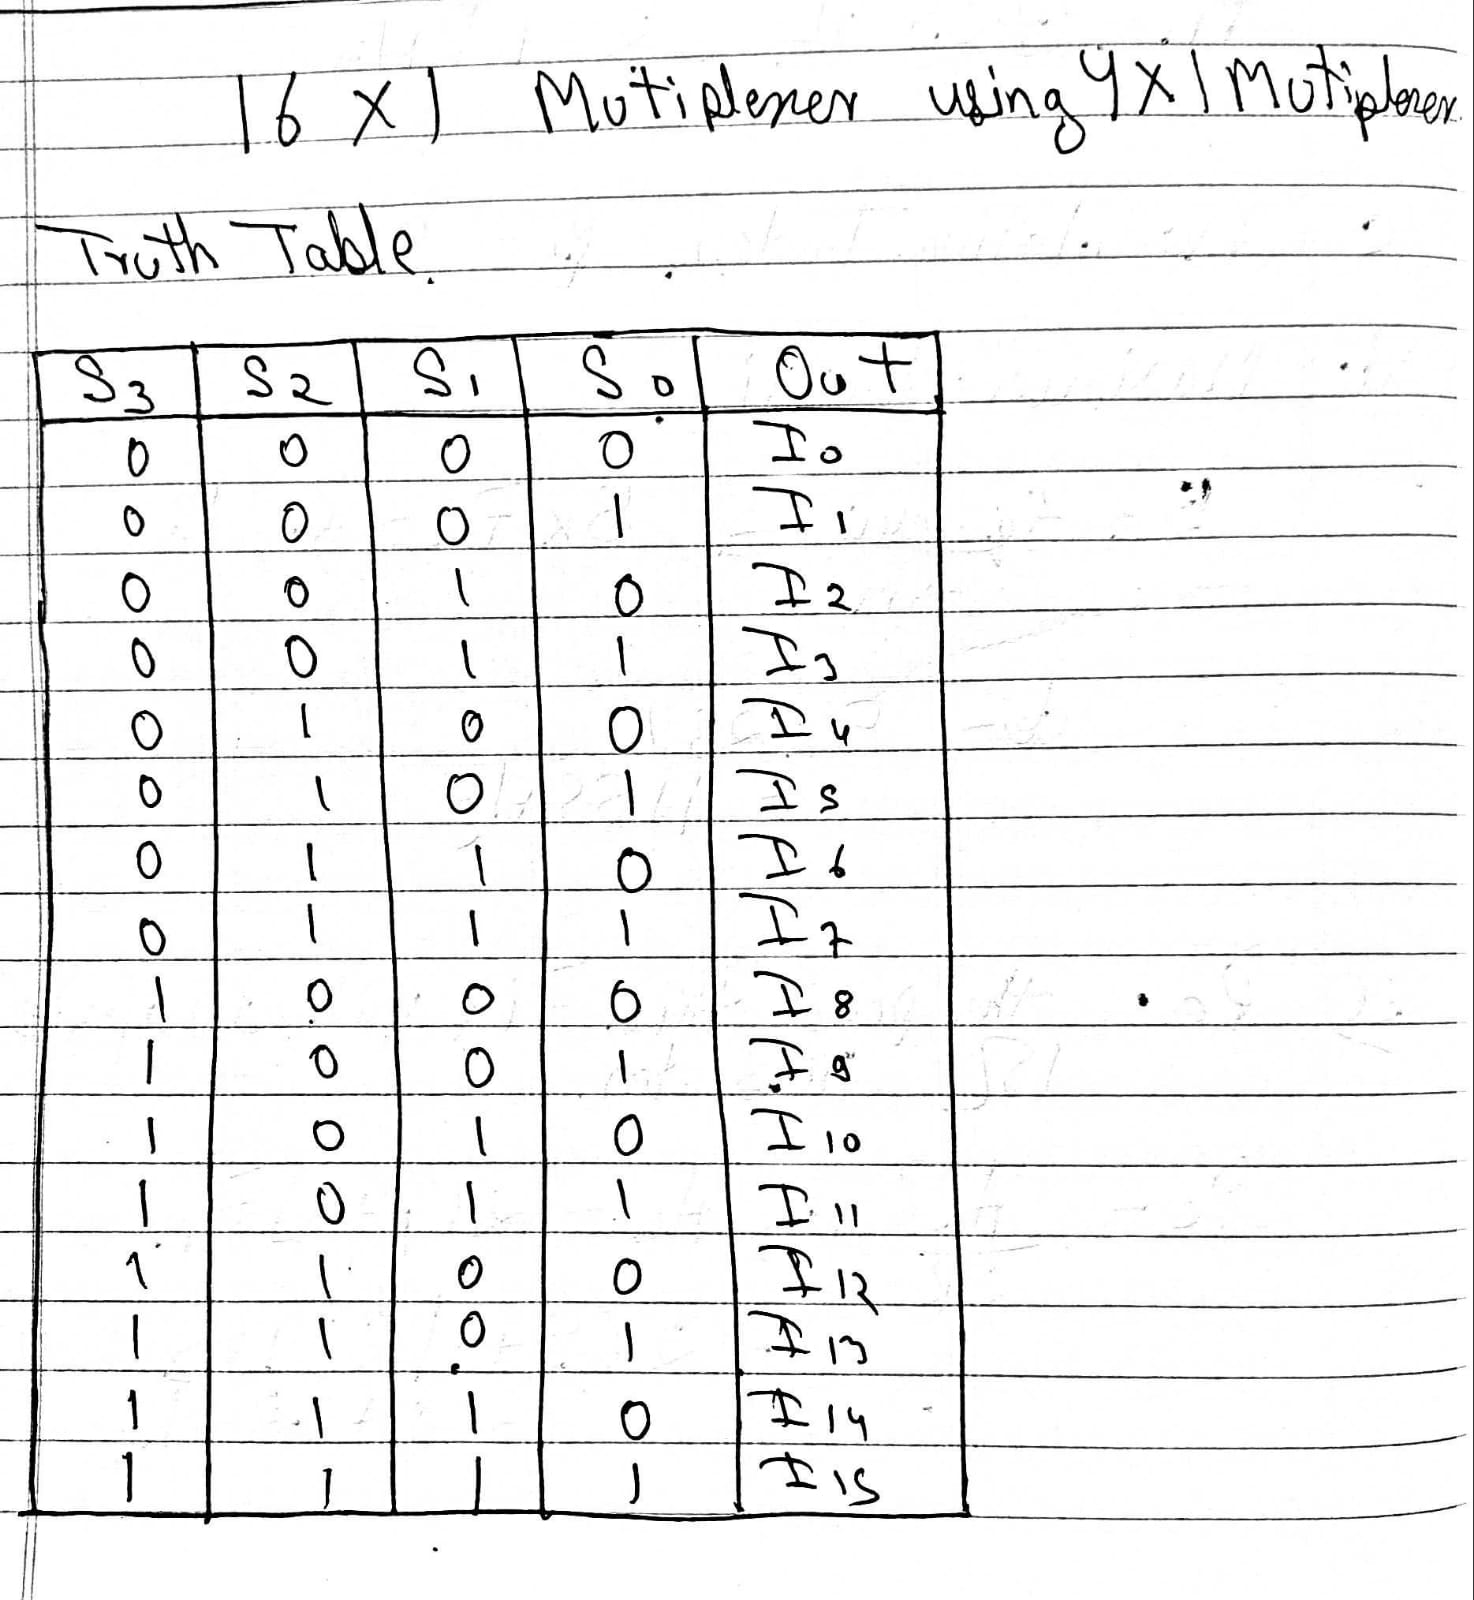 16 X 1 Mutiplexer using 4 X 1 Mutiplexer
Truth Table
S3 S2 S1 S0 Out
0 0 0 0 I0
0 0 0 1 I1
0 0 1 0 I2
0 0 1 1 I3
0 1 0 0 I4
0 1 0 1 I5
0 1 1 0 I6
0 1 1 1 I7
1 0 0 0 I8
1 0 0 1 I9
1 0 1 0 I10
1 0 1 1 I11
1 1 0 0 I12
1 1 0 1 I13
1 1 1 0 I14
1 1 1 1 I15